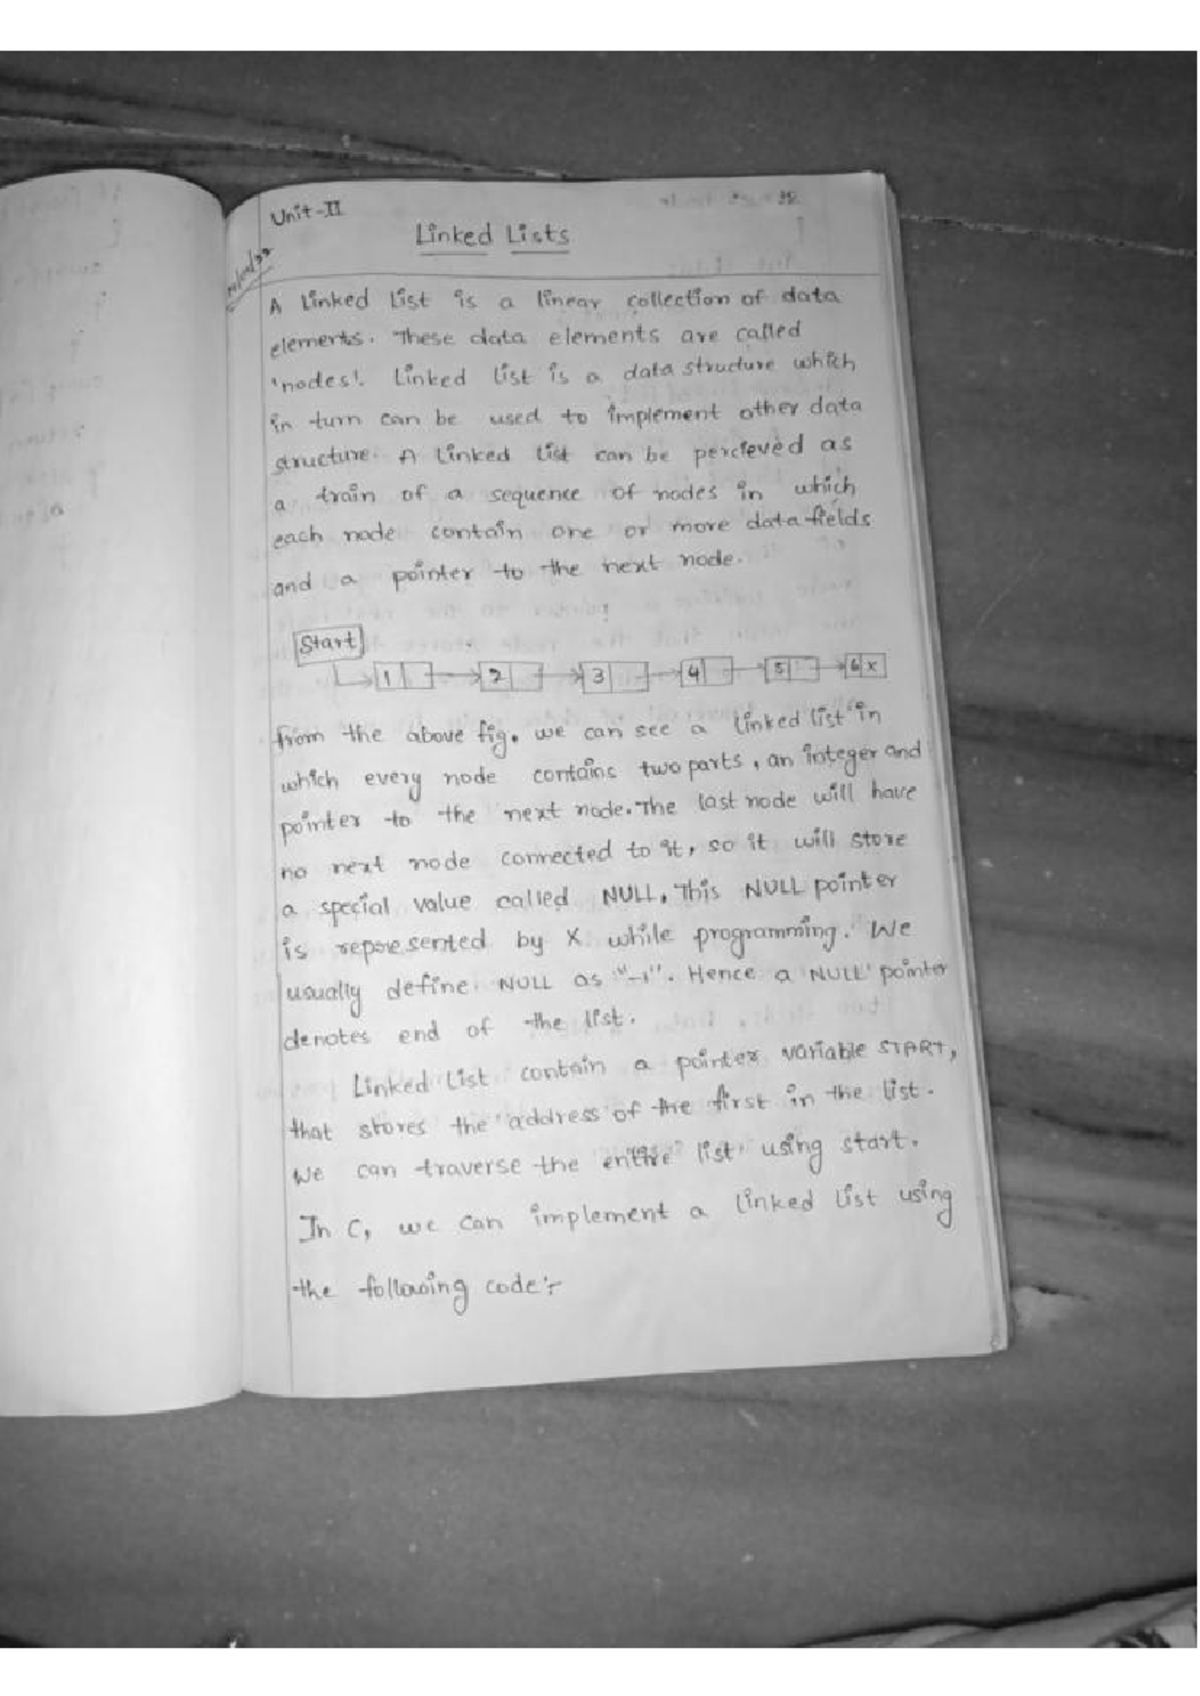 Unit-II
Linked Lists
A Linked List is a linear collection of data
elements. These data elements are called
'nodes'. Linked list is a data structure which
in turn can be used to implement other data
structure. A linked list can be percieved as
a train of a sequence of nodes in which
each node contain one or more data fields
and a pointer to the next node.
Start
1 2 3 4 5 6 X
from the above fig. we can see a linked list in
which every node contains two parts, an integer and
pointer to the next node. The last node will have
no next node connected to it, so it will store
a special value called NULL, This NULL pointer
is represented by X while programming. We
usually define NULL as "-1". Hence a NULL pointer
denotes end of the list.
Linked List contain a pointer variable START,
that stores the address of the first in the list.
We can traverse the entire list using start.
In C, we can implement a linked list using
the following code:-